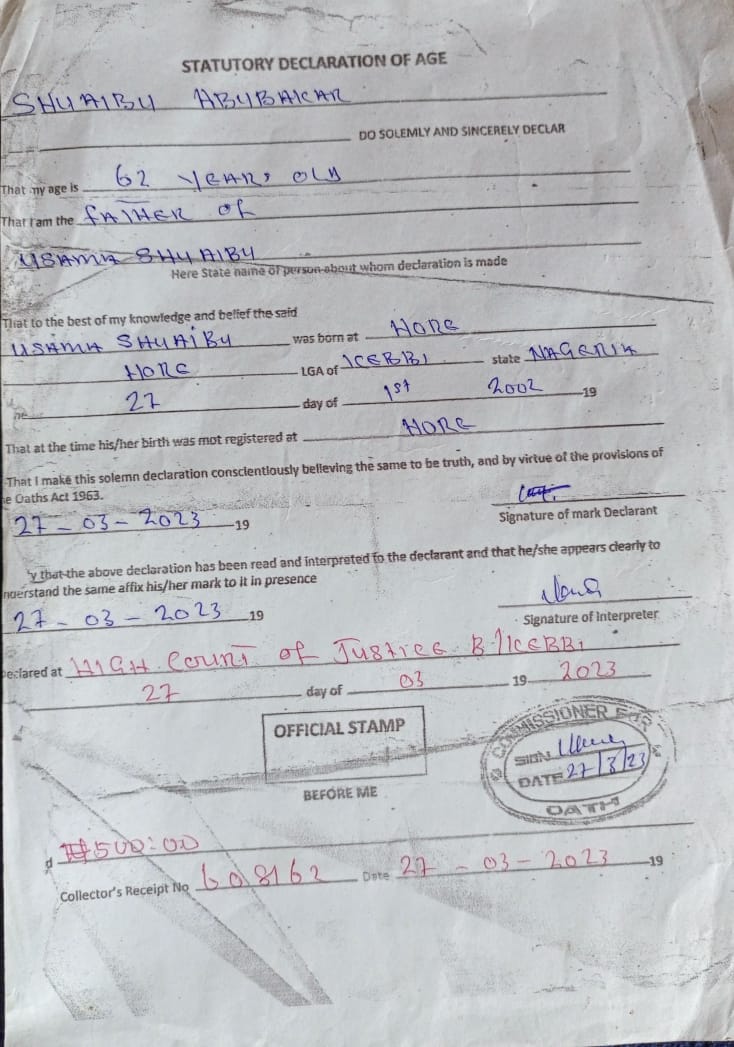 STATUTORY DECLARATION OF AGE
SHUAIBU ABUBAKAR
DO SOLEMLY AND SINCERELY DECLAR
That my age is 62 YEARS OLD
That I am the FATHER OF
USAMA SHUAIBU
Here State name of person about whom declaration is made
That to the best of my knowledge and belief the said
USAMA SHUAIBU was born at HORE
HORE LGA of KEBBI state NAGERIA
he 27 day of 1st 2002 19
That at the time his/her birth was mot registered at HORE
That I make this solemn declaration conscientiously believing the same to be truth, and by virtue of the provisions of
e Oaths Act 1963.
27-03-2023 19
Signature of mark Declarant
y that the above declaration has been read and interpreted to the declarant and that he/she appears clearly to
nderstand the same affix his/her mark to it in presence
27-03-2023 19
Signature of Interpreter
eclared at HIGH Court of Justice B/KEBBI
27 day of 03 19 2023
OFFICIAL STAMP
BEFORE ME
COMMISSIONER FOR
SIGN
DATE 27/3/23
OATH
d ₦500:00
Collector's Receipt No 608162 Date 27-03-2023 19